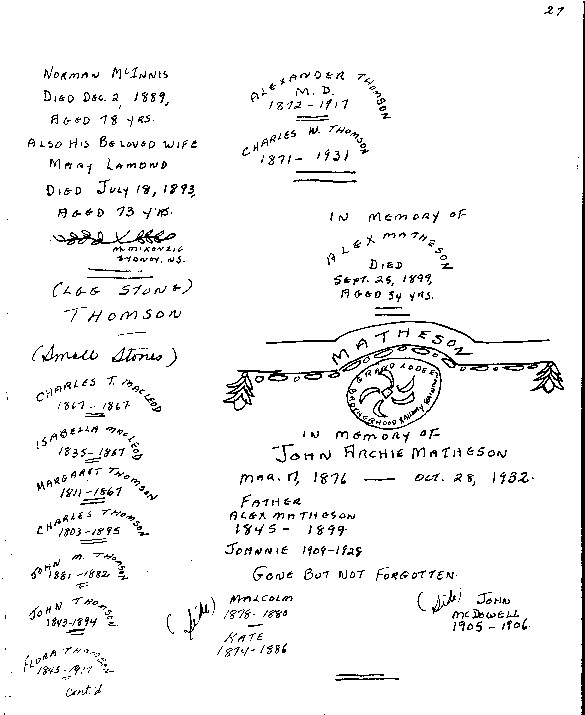 27
NORMAN MCINNIS
DIED DEC. 2, 1889,
AGED 78 YRS.
ALSO HIS BELOVED WIFE
MARY LAMOND
DIED JULY 18, 1893,
AGED 73 YRS.
SYDNEY, N.S.
(LGE STONE)
THOMSON
(Small Stones)
CHARLES T. MACLEOD
1867 - 1867
ISABELLA MACLEOD
1835 - 1867
MARGARET THOMSON
1811 - 1867
CHARLES THOMSON
1803 - 1895
JOHN M. THOMSON
1881 - 1882
JOHN THOMSON
1843 - 1894
FLORA THOMSON
1845 - 1917
Cont'd
ALEXANDER THOMSON
M.D.
1872 - 1917
CHARLES W. THOMSON
1871 - 1931
IN MEMORY OF
ALEX MATHESON
DIED
SEPT. 25, 1899,
AGED 54 YRS.
MATHESON
GRAND LODGE
BROTHERHOOD RAILWAY
IN MEMORY OF
JOHN ARCHIE MATHESON
MAR. 17, 1876 — OCT. 28, 1932.
FATHER
ALEX MATHESON
1845 - 1899.
JOHNNIE 1909-1928
GONE BUT NOT FORGOTTEN.
(Side)
MALCOLM
1878 - 1880
KATE
1874 - 1886
(Side) JOHN
MCDOWELL
1905 - 1906.